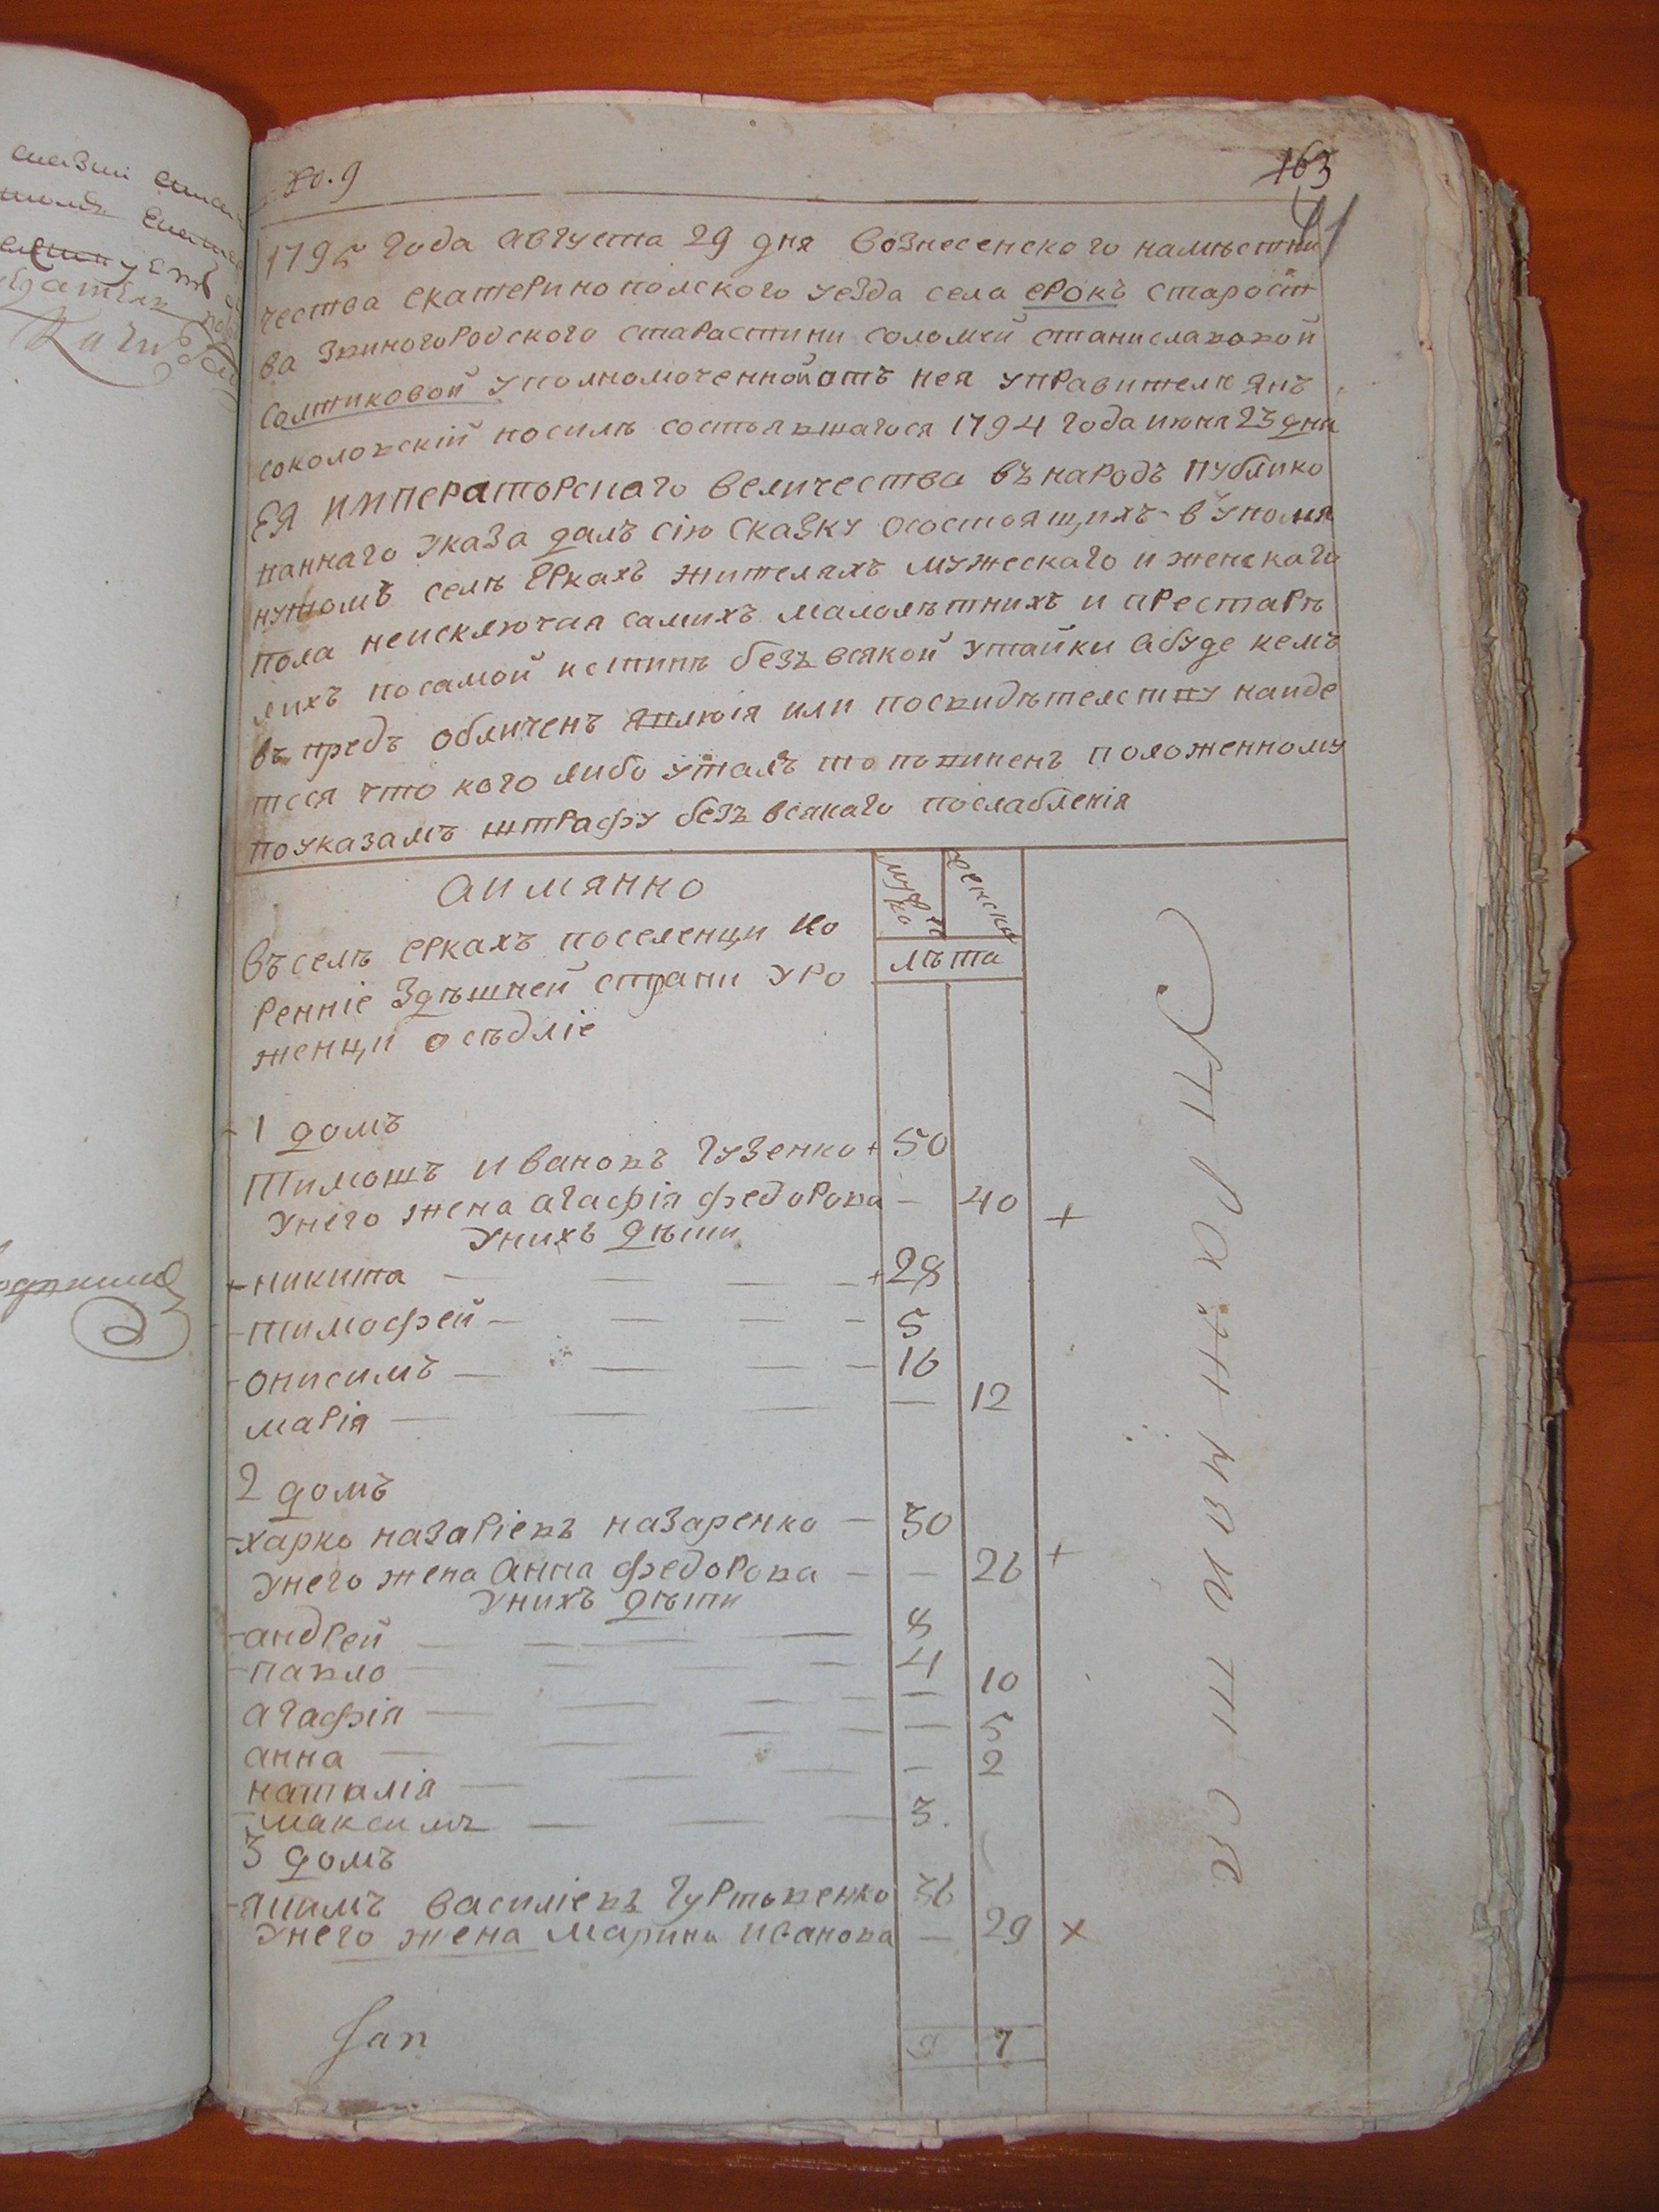 No. 9
163
41
1795 года августа 29 дня вознесенского намѣстни
чества екатеринополского уезда села ерокъ старост
ва звиногородского старастини соломеи станиславовой
Солтиковой уполномоченной отъ нея управителю янъ
соколовскій посилѣ состоявшагося 1794 года июня 23 дни
ЕЯ ИМПЕРаторскаго величества въ народъ публико
ваннаго указа далъ сію сказку осостоящихъ вупомя
нутомъ селѣ еркахъ жителяхъ мужескаго и женскаго
пола неисключая самихъ малолѣтнихъ и престарѣ
лихъ посамой истинѣ безъ всякой утайки абуде кемъ
въ предъ обличенъ явлюся или посвидѣтелству найде
тсся что кого либо утаалъ то повиненъ положенному
поуказамъ штрафу безъ всякаго послабленія
аимянно
мужеско
женска
лѣта
въ селѣ еркахъ поселенци ко
ренніе здѣшней страни уро
женци осѣдліе
1 домъ
тимошъ ивановъ гузенко + 50
унего жена агафія федорова — 40 +
унихъ дѣти
никита — + 28
тимофей — 5
онисимъ — 16
марія — 12
2 домъ
харко назаріевъ назаренко — 30
унего жена анна федорова — 26 +
унихъ дѣти
андрей — 8
павло — 4
агафія — 10
анна — 5
наталія — 2
максимъ — 3.
3 домъ
якимъ василіевъ гуртовенко 36
унего жена марина иванова — 29 ×
Jan
9 7